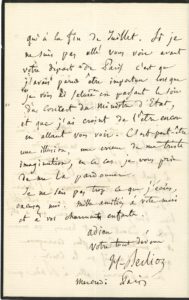 qu'à la fin de Juillet. Si je
ne suis pas allé vous voir avant
votre départ de Paris c'est que
j'avais peur d'être importun lorsque
je vous ai
du Ministre d'Etat,
et que j'ai craint de l'être encore
en allant vous voir. C'est peut-être
une illusion, une erreur de ma triste
imagination, en ce cas je vous prie
de me la pardonner.
Je ne sais pas trop ce que j'écris,
excusez moi. Mille amitiés à votre mari
et à vos charmants enfants.
adieu
Votre tout dévoué
H. Berlioz
mercredi Paris